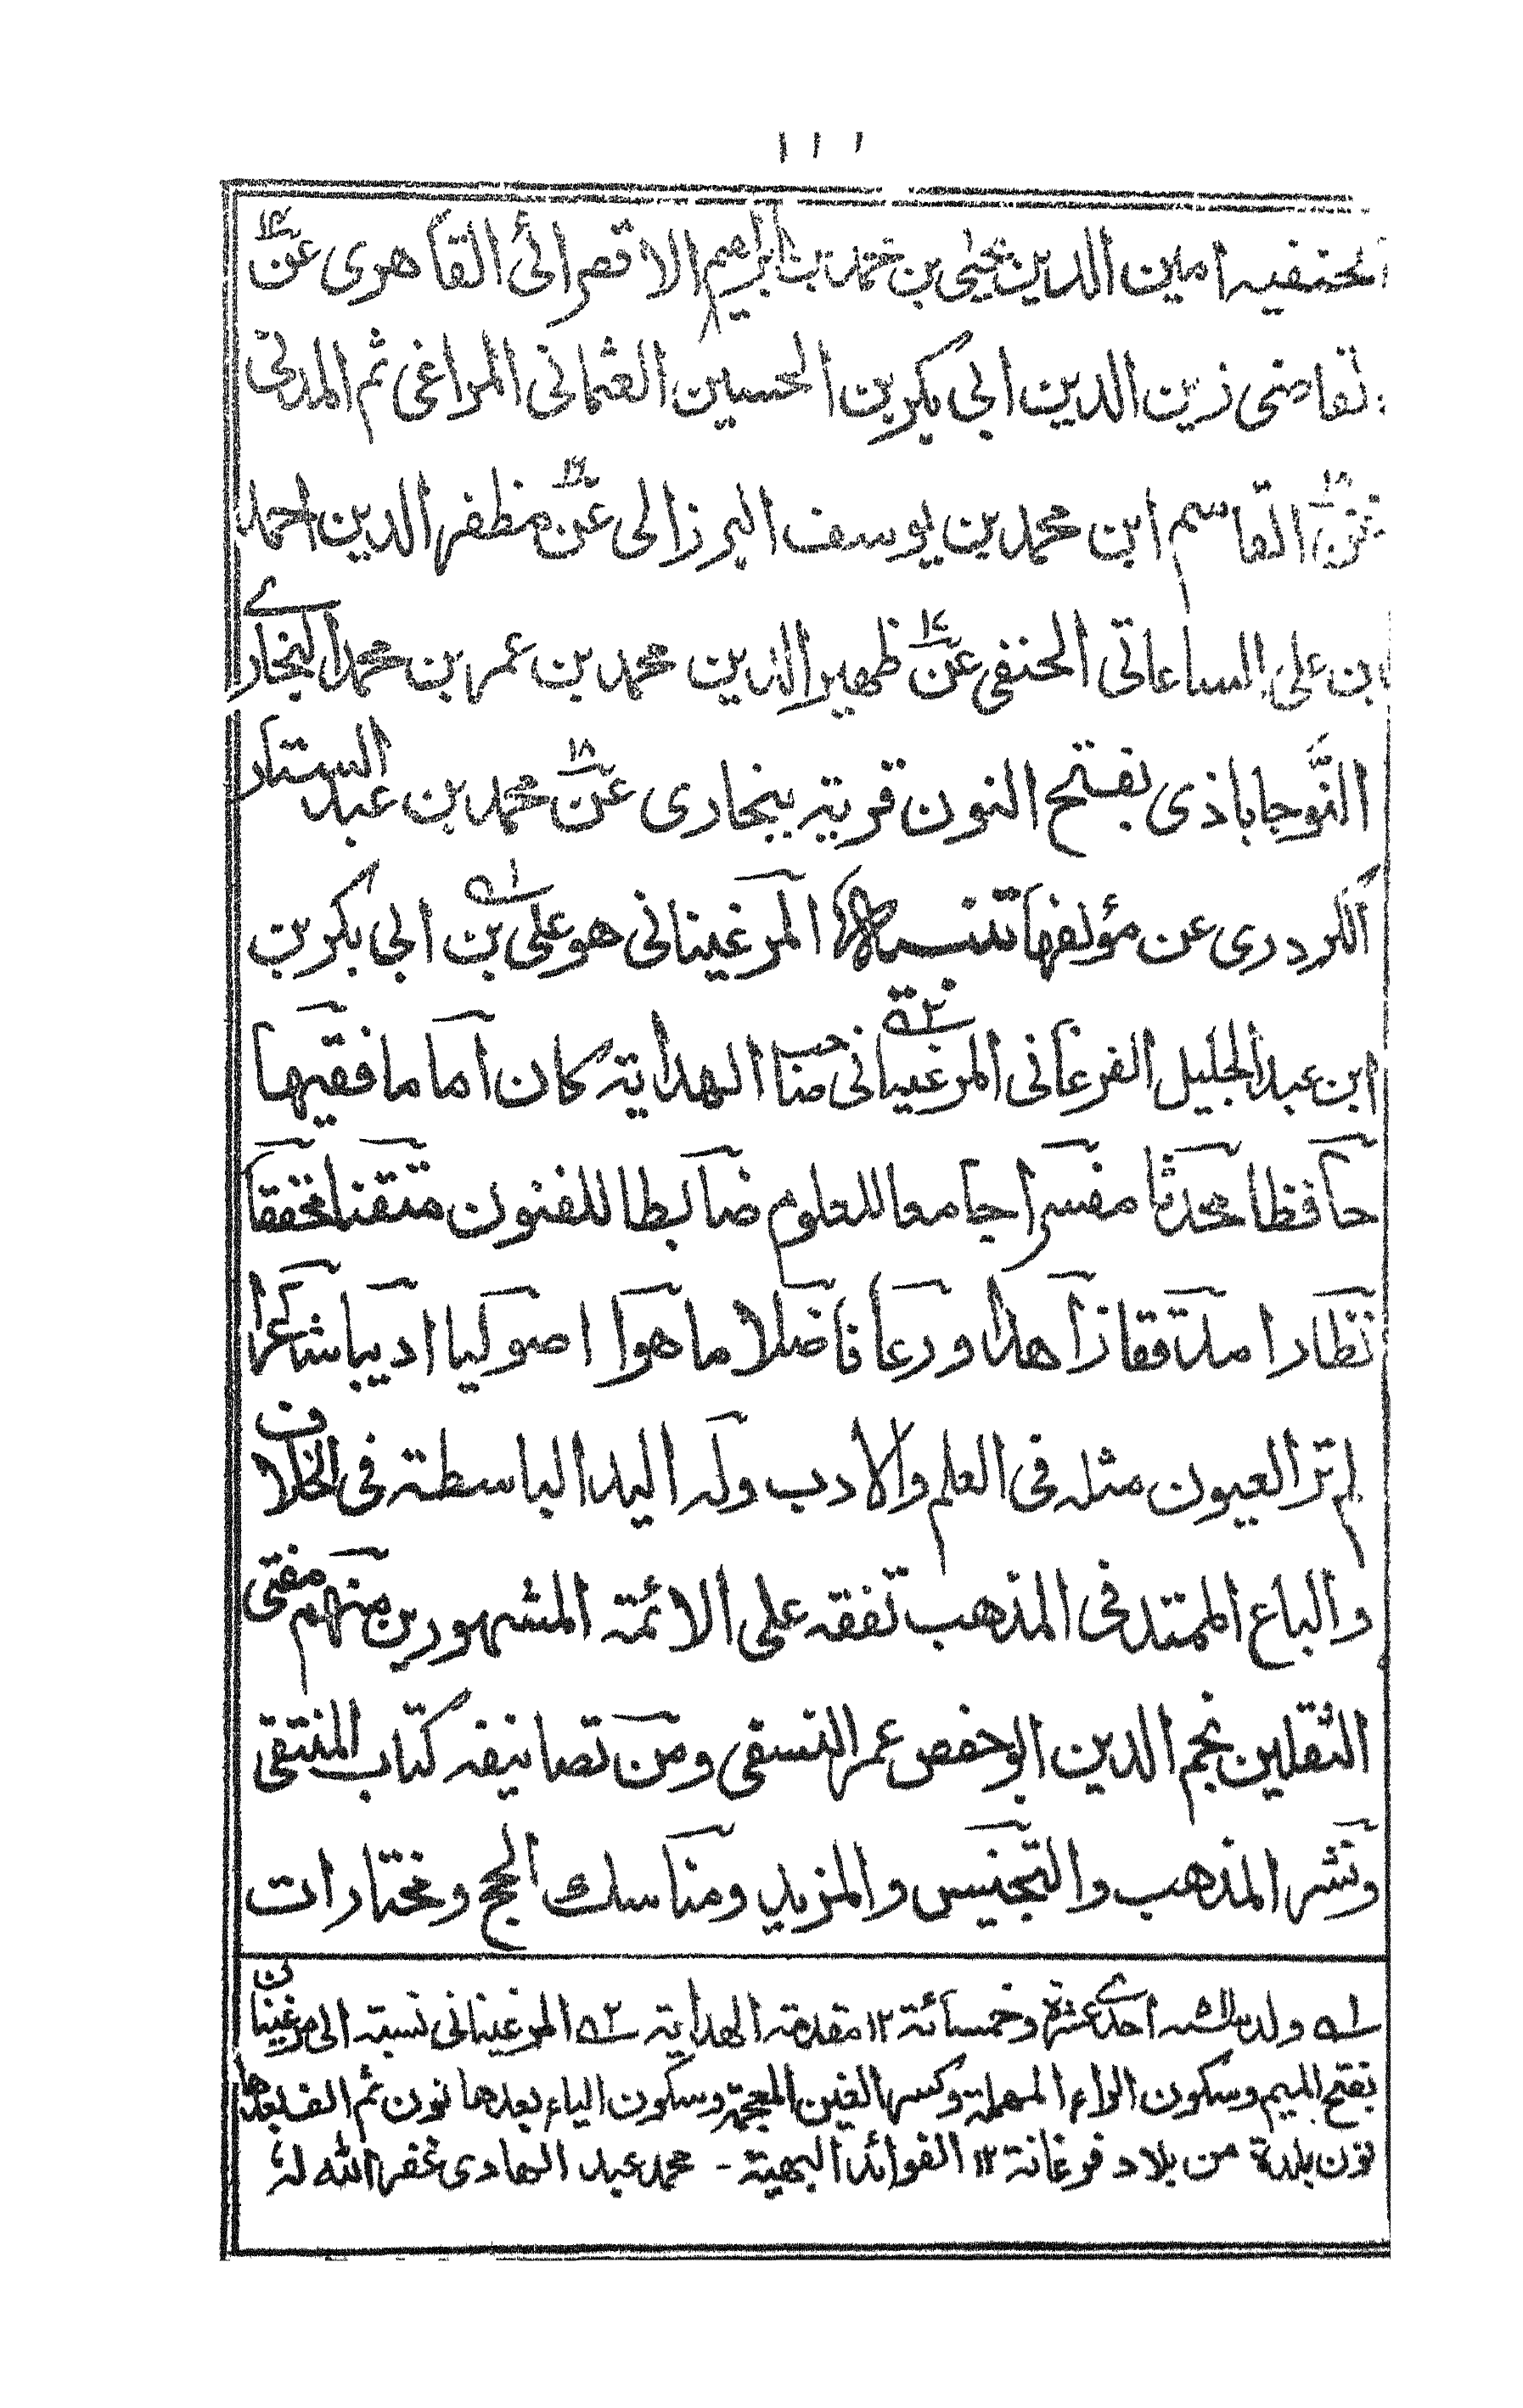 ١١١
الحنفيه امين الدين يحيى بن محمد بن ابراهيم الاقصرائى القاهرى عن ١٤
القاضى زين الدين ابى بكر بن الحسين العثمانى المراغى ثم المدنى
عن القاسم ابن محمد بن يوسف البرزالى عن ١٦ مظفر الدين احمد
بن على الساعاتى الحنفى عن ١٧ ظهير الدين محمد بن عمر بن محمد البخارے
النَّوجاباذى بفتح النون قرية ببخارى عن ١٨ محمد بن عبد الستار
الكردرى عن مؤلفها تنبيه المرغينانى هو على ١ه بن ابى بكر بن
ابن عبد الجليل الفرغانى المرغينانى ٢ه صاحب الهداية كان اماما فقيها
حافظا محدثا مفسرا جامعا للعلوم ضابطا للفنون متقنا محققا
نظارا مدققا زاهدا ورعا فاضلا ماهرا اصوليا اديبا شاعرا
لم تر العيون مثله فى العلم والادب وله اليد الباسطة فى الخلاف
والباع الممتد فى المذهب تفقه على الائمة المشهورين منهم مفتى
الثقلين نجم الدين ابو حفص عمر النسفى ومن تصانيفه كتاب المنتقى
ونشر المذهب والتجنيس والمزيد ومناسك الحج ومختارات
١ه ولد سنة احدے عشرة وخمسائة ١٢ مقدمة الهداية ٢ه المرغينانى نسبة الى مرغينان
بفتح الميم وسكون الراء المهملة وكسر الغين المعجمة وسكون الياء بعدها نون ثم الف بعدها
نون بلدة من بلاد فرغانة ١٢ الفوائد البهية - محمد عبد الهادى غفر الله له